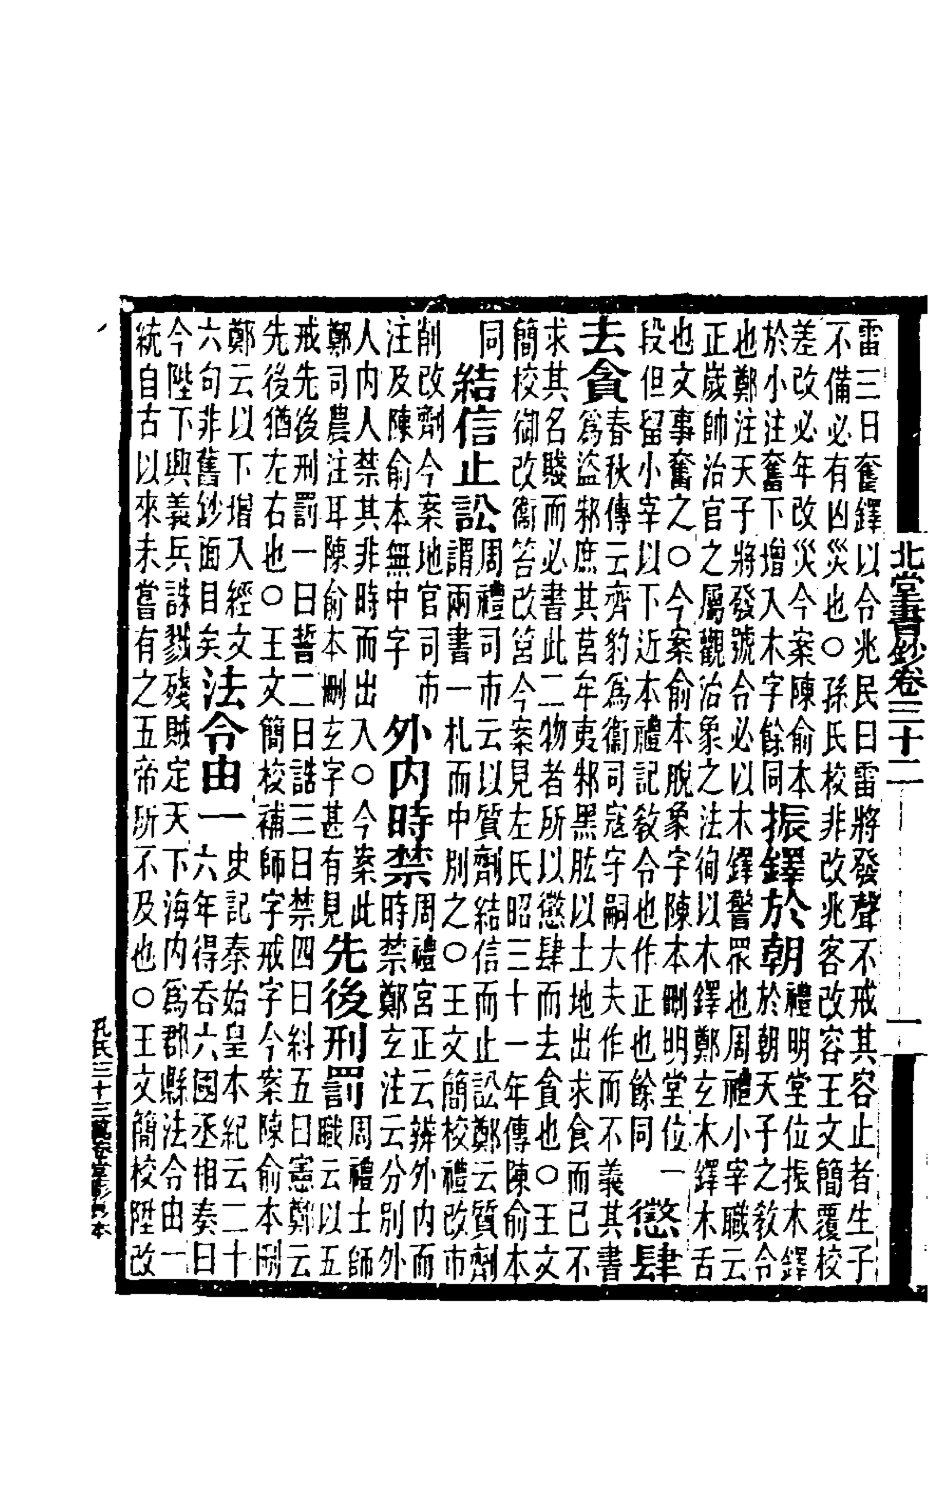 北堂書鈔卷三十二
一
雷三日奮鐸以令兆民曰雷將發聲不戒其容止者生子
不備必有凶災也○孫氏校非改兆客改容王文簡覆校
差改必年改災今案陳俞本
於小注奮下增入木字餘同
振鐸於朝
禮明堂位振木鐸
於朝天子之敎令
也鄭注天子將發號令必以木鐸警眾也周禮小宰職云
正歲帥治官之屬觀治象之法徇以木鐸鄭玄木鐸木舌
也文事奮之○今案俞本脫象字陳本刪明堂位一
段但留小宰以下近本禮記敎令也作正也餘同
懲肆
去貪
春秋傳云齊豹爲衞司寇守嗣大夫作而不義其書
爲盜邾庶其莒牟夷邾黑肱以土地出求食而已不
求其名賤而必書此二物者所以懲肆而去貪也○王文
簡校御改衞答改莒今案見左氏昭三十一年傳陳俞本
同
結信止訟
周禮司市云以質劑結信而止訟鄭云質劑
謂兩書一札而中別之○王文簡校禮改市
削改劑今案地官司市
注及陳俞本無中字
外内時禁
周禮宮正云辨外内而
時禁鄭玄注云分別外
人内人禁其非時而出入○今案此
鄭司農注耳陳俞本刪玄字甚有見
先後刑罰
周禮士師
職云以五
戒先後刑罰一曰誓二曰誥三曰禁四曰糾五曰憲鄭云
先後猶左右也○王文簡校補師字戒字今案陳俞本刪
鄭云以下增入經文
六句非舊鈔面目矣
法令由一
史記秦始皇本紀云二十
六年得吞六國丞相奏曰
今陛下興義兵誅戮殘賊定天下海内爲郡縣法令由一
統自古以來未嘗有之五帝所不及也○王文簡校陞改
孔氏三十三萬卷堂影鈔本